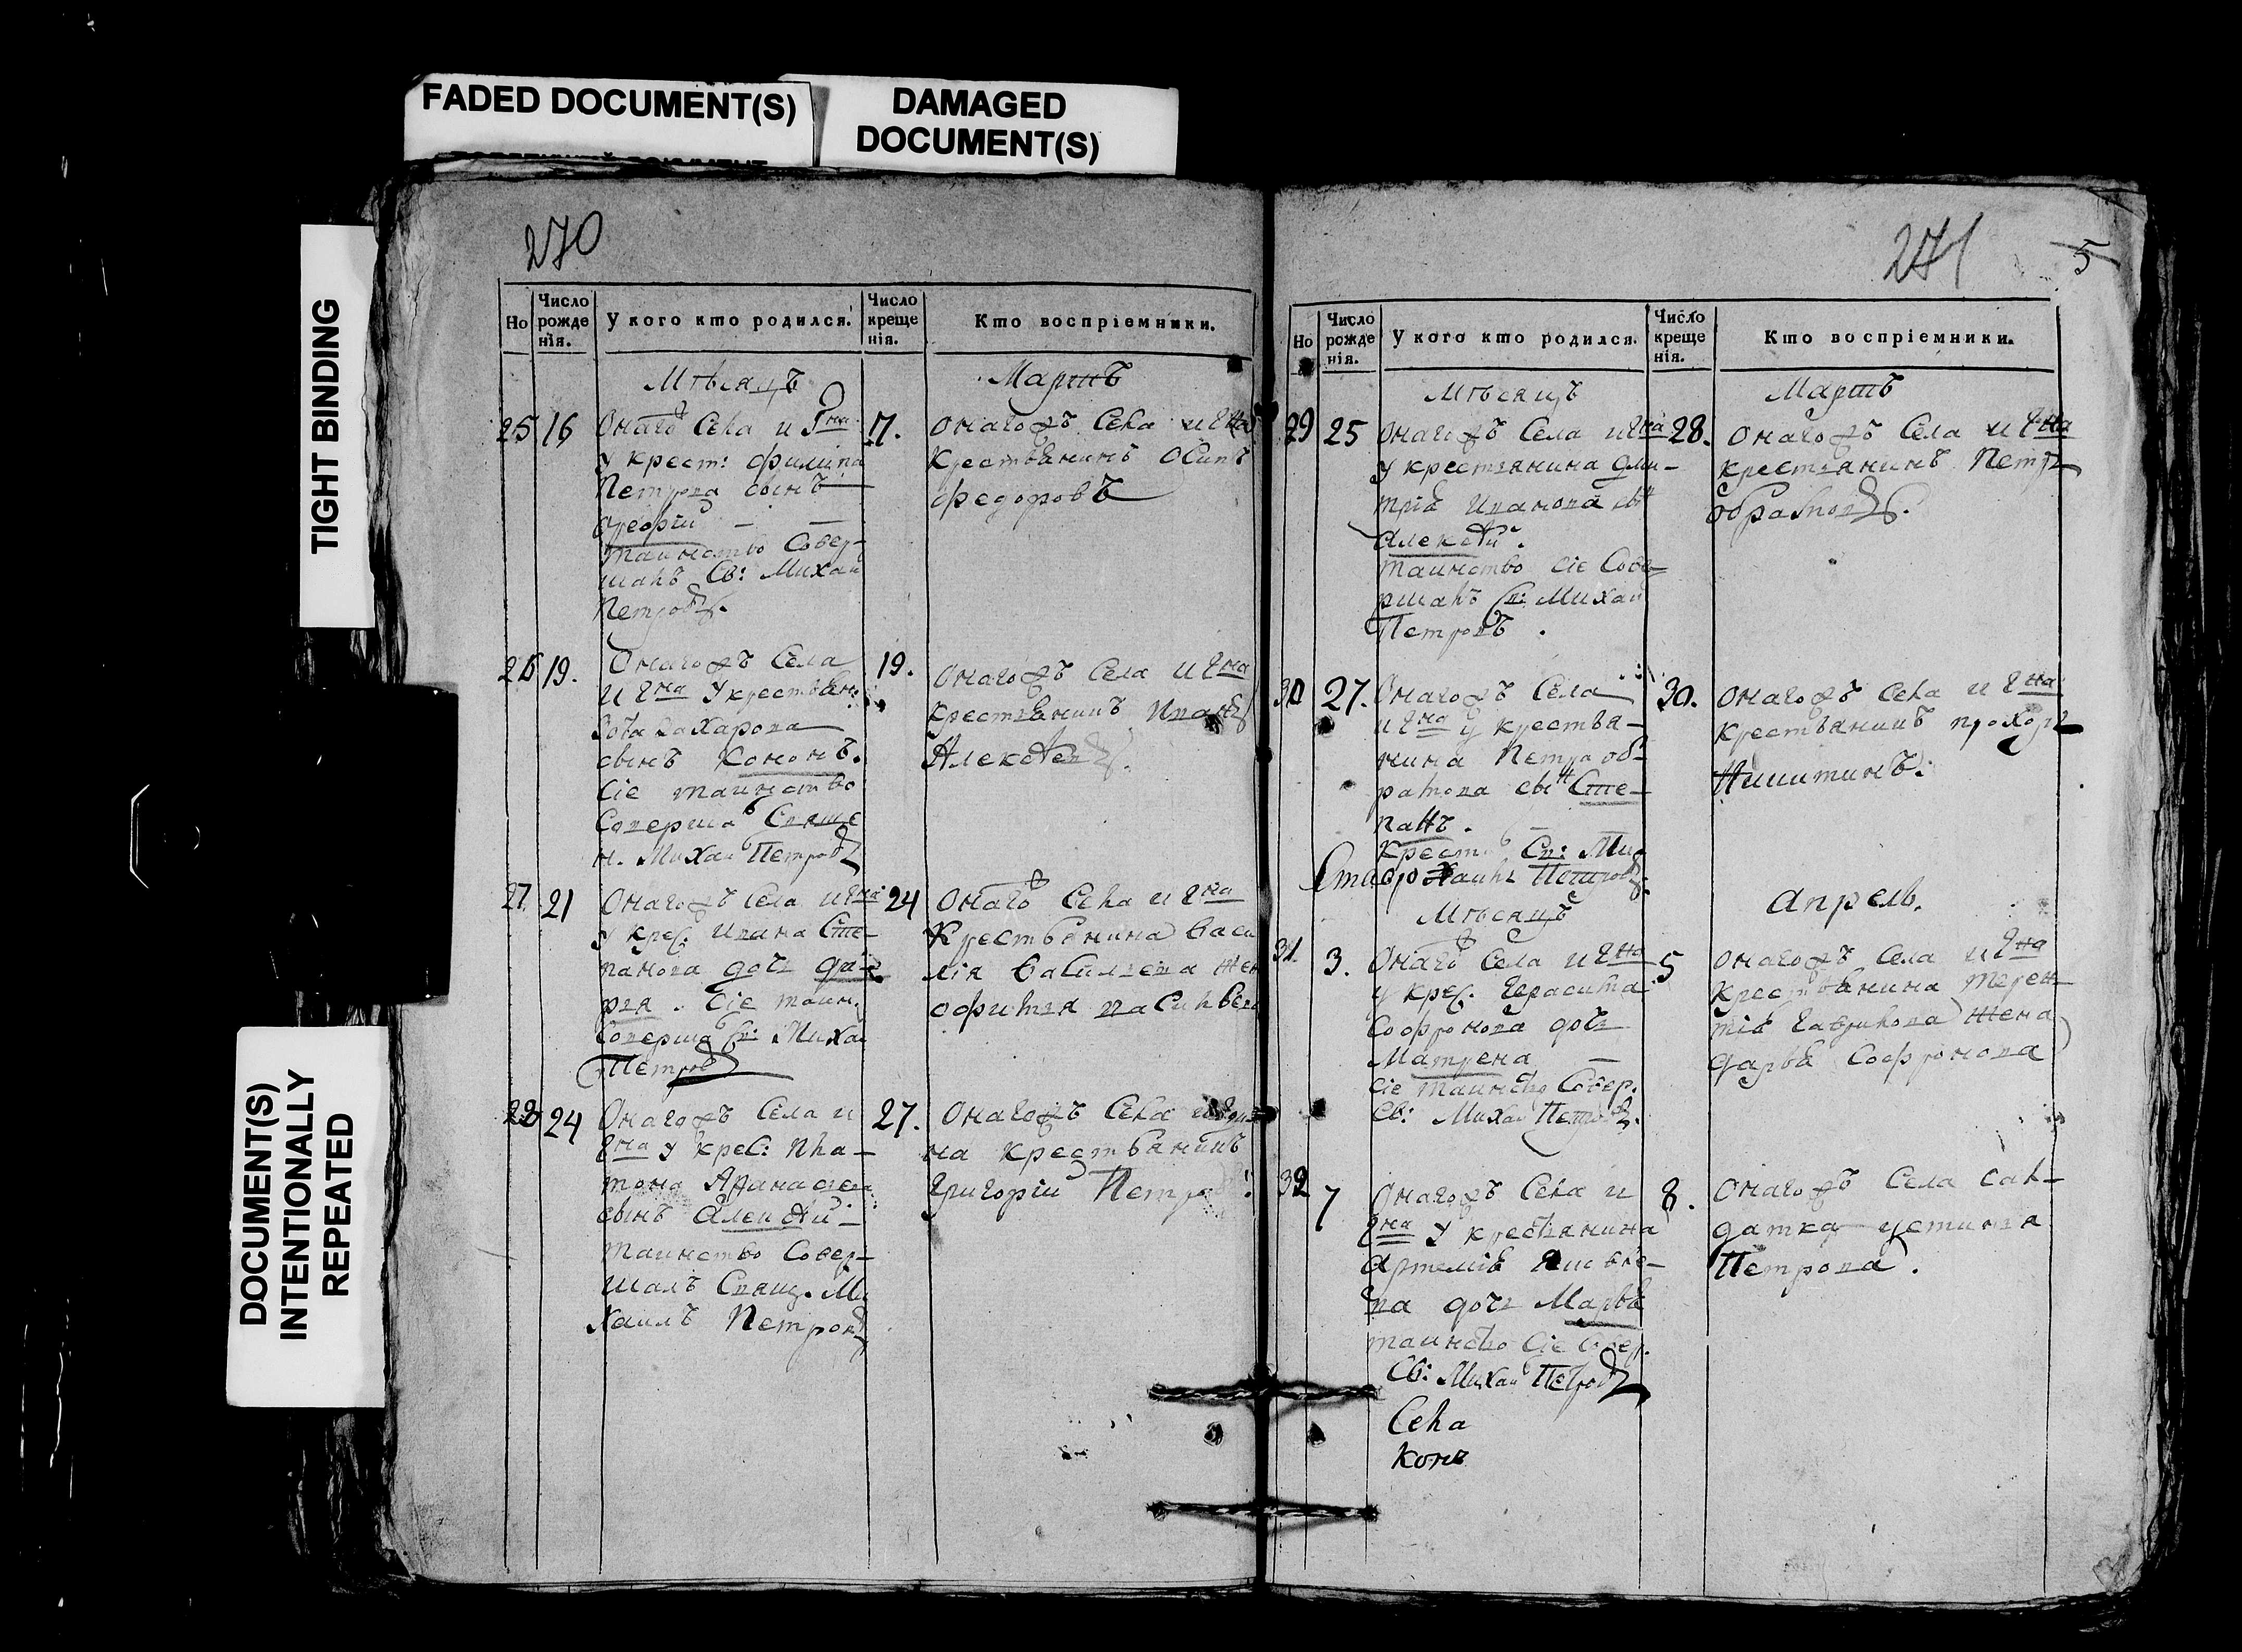 FADED DOCUMENT(S)
DAMAGED
DOCUMENT(S)
TIGHT BINDING
DOCUMENT(S)
INTENTIONALLY
REPEATED
270
Но
Число рожде нія.
У кого кто родился.
Число креще нія.
Кто воспріемники.
Мѣсяцъ
Мартъ
25 16
Онаго Села и
у крест: филипа
Петрова сынъ
Георгій
таинство Совер-
шалъ Св: Михаи
Петровъ.
17.
Онагожъ Села и
крестьянинъ Осипъ
федоровъ
26 19.
Онагожъ Села
и Чна У крестьян:
Зота Захарова
сынъ Кононъ.
Сіе таинство
Соверша Свяще
н. Михаи Петровъ
19.
Онагожъ Села и Чна
крестьянинъ Иванъ
Алексѣевъ.
27. 21
Онагожъ Села и Чна
у крес: Ивана Сте-
панова дочь да-
рья. Сіе таин.
Соверша Св: Миха
Петровъ
24
Онаго Села и Чна
Крестьянина Васи
лія Васильева жен
офимья
28 24
Онагожъ Села и
Чна у крес: Пла-
тона Афанасьева
сынъ Алексѣй
таинство Совер-
шалъ Свящ. Ми
хаилъ Петровъ
27.
Онагожъ Села
на крестьянинъ
Григорій Петровъ
271
5
Но
Число рожде нія.
У кого кто родился.
Число креще нія.
Кто воспріемники.
Мѣсяцъ
Мартъ
29 25
Онагожъ Села и Чна
у крестьянина Дми-
трія Иванова сын
Алексѣй.
таинство сіе Сове
ршалъ Св: Михаи
Петровъ.
28.
Онагожъ Села и Чна
крестьянинъ Петръ
30 27.
Онагожъ Села
и Чна у крестья-
нина Петра об-
сын Сте-
панъ.
Крест. Св: Ми-
хаилъ Петровъ.
30.
Онагожъ Села и Чна
крестьянинъ прохоръ
Никитинъ.
Мѣсяцъ
Апрель.
31. 3.
Онаго Села и Чна
у крес. Герасима
Софронова дочь
Матрена
сіе таинство Совер.
Св: Михаи Петровъ.
5
Онагожъ Села и Чна
Крестьянина Терен-
тія Гаврилова жена
дарья Софронова
32 7
Онагожъ Села и
Чна У крестьянина
Артемія
ва дочь Марѳа
таинство Сіе Совер.
Св: Михаи Петровъ
Села
Конъ
8.
Онагожъ Села сал-
датка устинья
Петрова.